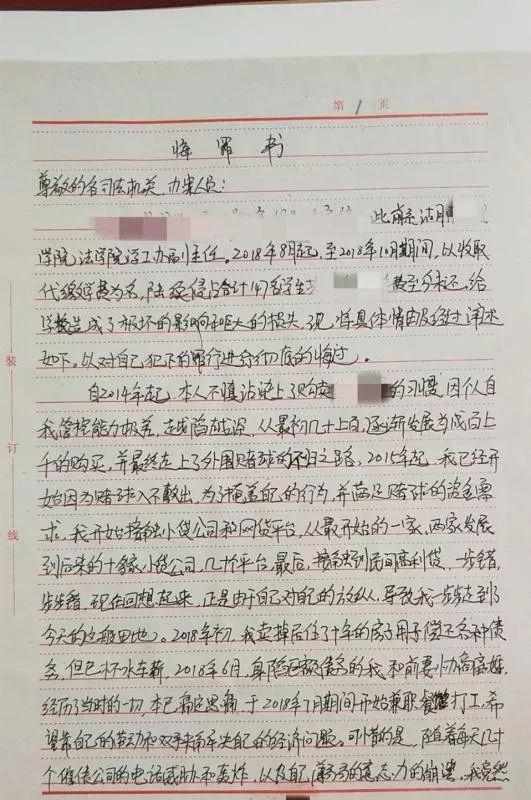 第 1 页
悔罪书
尊敬的各司法机关、办案人员：
学院法学院学工办副主任。2018年8月起，至2018年10月期间，以收取
代缴学费为名，陆续侵占合计47名学生 费至今未还，给
学校造成了极坏的影响和巨大的损失，现将具体情由及经过详述
如下。以对自己犯下的罪行进行彻底的悔过。
自2014年起，本人不慎沾染上了购买 的习惯，因个人自
我管控能力极差，越陷越深，从最初几十上百，逐渐发展为成百上
千的购买，并最终走上了外围赌球的不归之路。2015年起，我已经开
始因为赌球入不敷出，为了掩盖自己的行为，并满足赌球的资金需
求，我开始接触小贷公司和网贷平台，从最开始的一家、两家发展
到后来的十多家小贷公司，几十个平台，最后，接触到民间高利贷，一步错，
步步错，现在回想起来，正是由于自己对自己的放纵，导致我一步步走到了
今天的这般田地。2018年初，我卖掉居住了十年的房子用于偿还各种债
务，但已杯水车薪，2018年6月，身陷巨额债务的我，和前妻协商离婚，
经历了当时的一切，本已痛定思痛，于2018年7月期间开始兼职 打工，希
望靠自己的劳动和双手来解决自己的经济问题。可惜的是，随着每天几十
个催债公司的电话威胁和轰炸，以及自己 的意志力的崩溃，我竟然
装
订
线